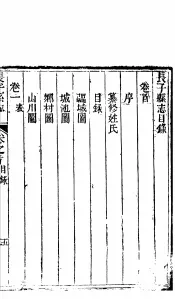 長子縣志目錄
卷首
序
纂修姓氏
目錄
疆域圖
城池圖
鄉村圖
山川圖
卷一 表